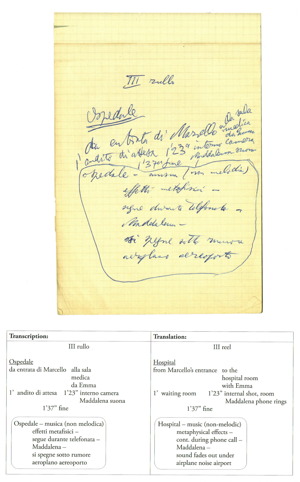 III rullo
Ospedale
da entrata di Marcello da sala
medica
da Emma
1' andito di attesa 1'23" interno camera
Maddalena suona
1'37" fine
Ospedale – musica (non melodica)
effetti metafisici –
segue durante telefonata –
Maddalena –
si spegne sotto rumore
aeroplano aeroporto
Transcription:
III rullo
Ospedale
da entrata di Marcello alla sala
medica
da Emma
1' andito di attesa 1'23" interno camera
Maddalena suona
1'37" fine
Ospedale – musica (non melodica)
effetti metafisici –
segue durante telefonata –
Maddalena –
si spegne sotto rumore
aeroplano aeroporto
Translation:
III reel
Hospital
from Marcello's entrance to the
hospital room
with Emma
1' waiting room 1'23" internal shot, room
Maddalena phone rings
1'37" fine
Hospital – music (non-melodic)
metaphysical effects –
cont. during phone call –
Maddalena –
sound fades out under
airplane noise airport